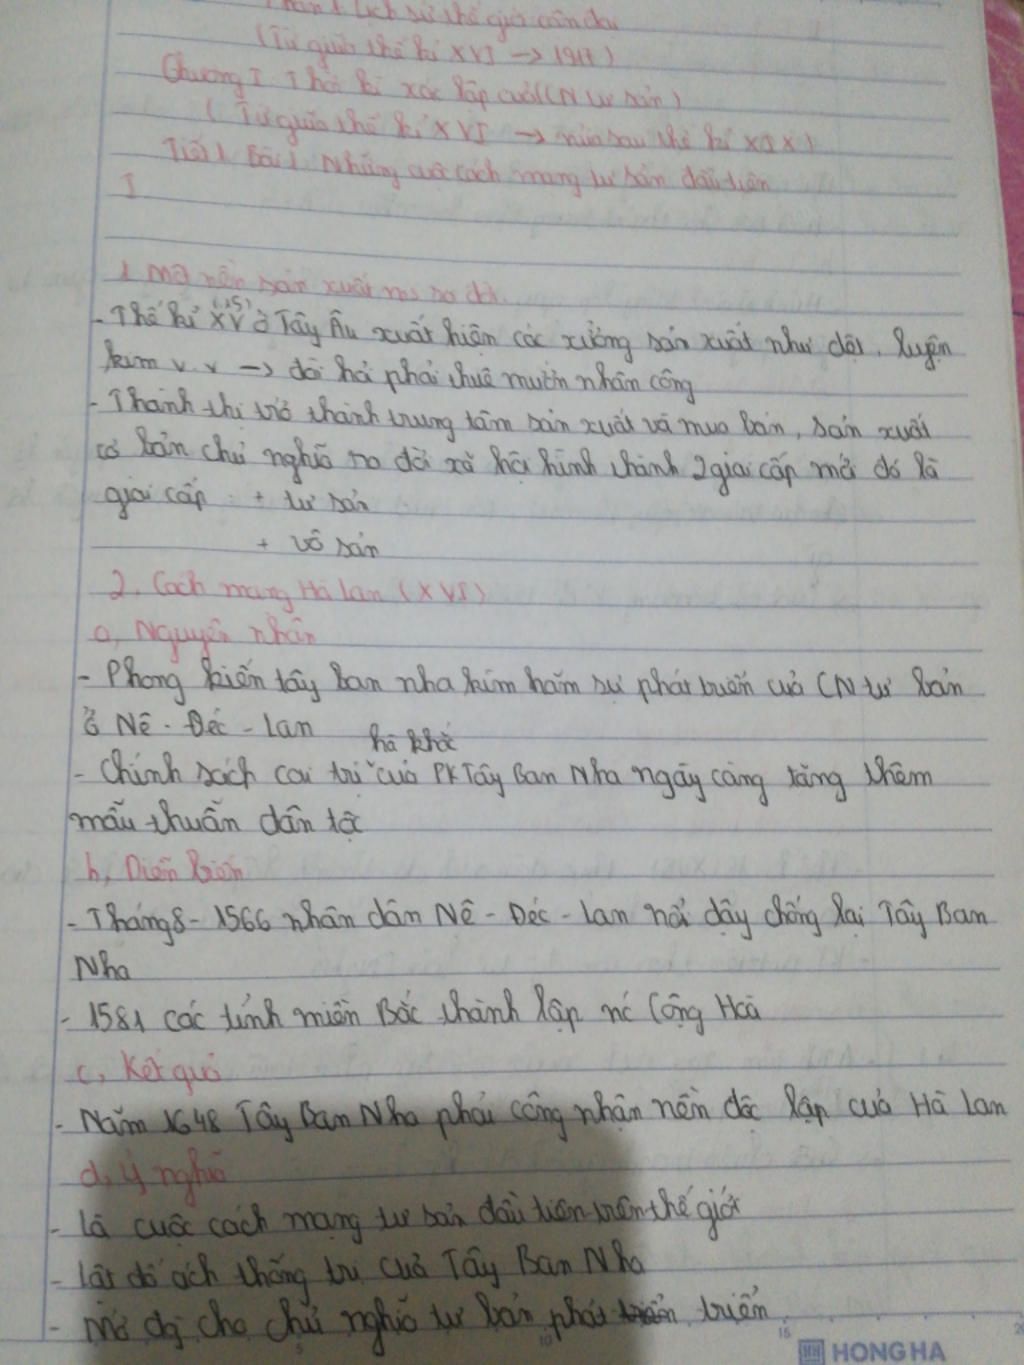 Phần 1 Lịch sử thế giới cận đại
(Từ giữa thế kỉ XVI -> 1917)
Chương I Thời kì xác lập của CN tư bản)
( Từ giữa thế kỉ XVI -> nửa sau thế kỉ XIX)
Tiết 1 Bài 1 Những cuộc cách mạng tư sản đầu tiên
I
1 Một nền sản xuất mới ra đời
(15)
- Thế kỉ XV ở Tây Âu xuất hiện các xưởng sản xuất như dệt, luyện
kim v.v -> đòi hỏi phải thuê mướn nhân công
- Thành thị trở thành trung tâm sản xuất và mua bán, sản xuất
cơ bản chủ nghĩa ra đời xã hội hình thành 2 giai cấp mới đó là
giai cấp + tư sản
+ vô sản
2. Cách mạng Hà Lan (XVI)
a, Nguyên nhân
- Phong kiến tây ban nha kìm hãm sự phát triển của CN tư bản
ở Nê - Đéc - lan
hà khắc
- Chính sách cai trị của PK Tây Ban Nha ngày càng tăng thêm
mâu thuẫn dân tộc
b, Diễn biến
- Tháng 8 - 1566 nhân dân Nê - Đéc - lan nổi dậy chống lại Tây Ban
Nha
- 1581 các tỉnh miền Bắc thành lập nc Cộng Hoà
c, Kết quả
- Năm 1648 Tây Ban Nha phải công nhận nền độc lập của Hà Lan
d, ý nghĩa
- là cuộc cách mạng tư sản đầu tiên trên thế giới
- lật đổ ách thống trị của Tây Ban Nha
- Mở đg cho chủ nghĩa tư bản phát triển
5 10 15 20
HONG HA